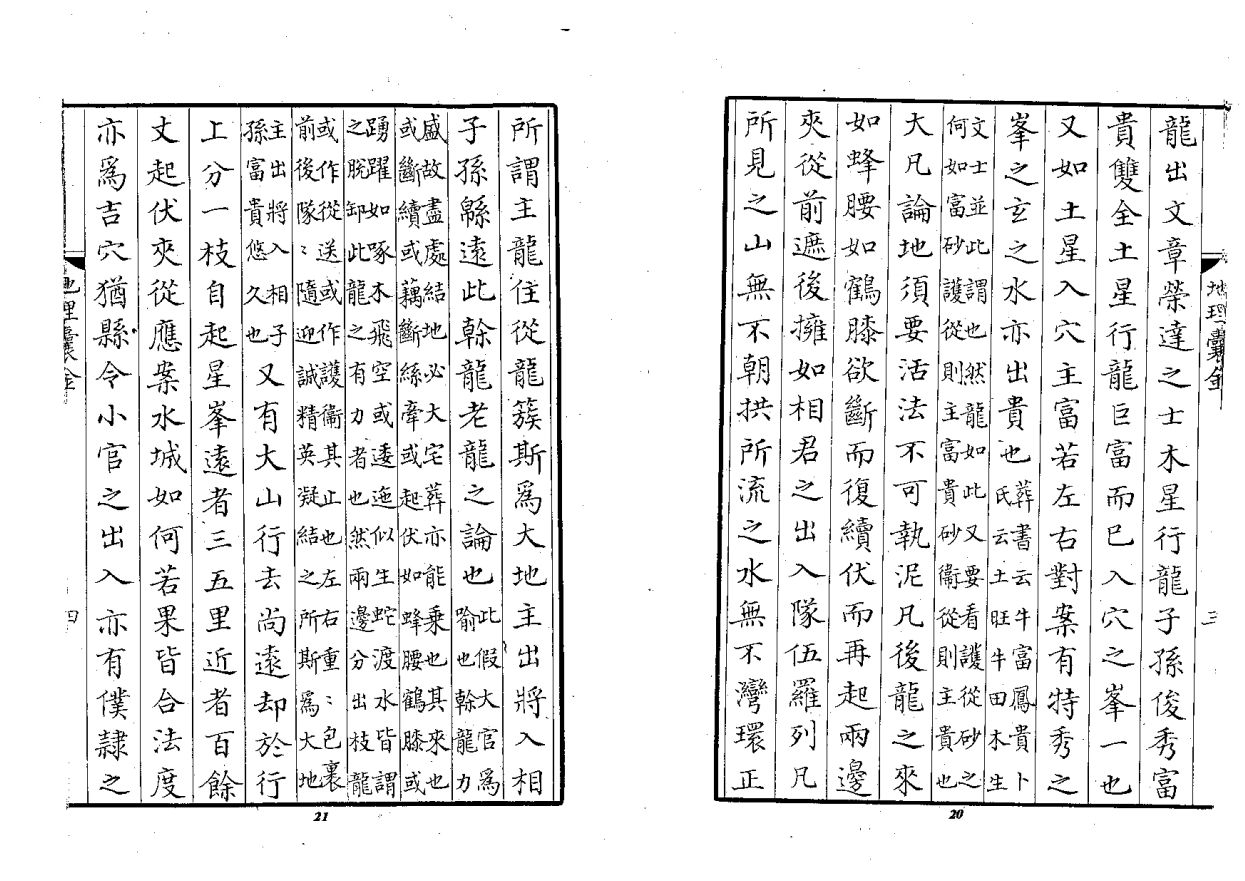 地理囊金
三
龍出文章榮達之士木星行龍子孫俊秀富
貴雙全土星行龍巨富而已入穴之峯一也
又如土星入穴主富若左右對案有特秀之
峯之玄之水亦出貴也葬書云牛富鳳貴卜
氏云土旺牛田木生
文士並此謂也然龍如此又要看護從砂之
何如富砂護從則主富貴砂衛從則主貴也
大凡論地須要活法不可執泥凡後龍之來
如蜂腰如鶴膝欲斷而復續伏而再起兩邊
夾從前遮後擁如相君之出入隊伍羅列凡
所見之山無不朝拱所流之水無不灣環正
20
所謂主龍住從龍簇斯爲大地主出將入相
子孫緜遠此幹龍老龍之論也此假大官爲
喻也幹龍力
盛故盡處結地必大宅葬亦能乗也其來也
或斷續或藕斷絲牽或起伏如蜂腰鶴膝或
踴躍如啄木飛空或逶迤似生蛇渡水皆謂
之脫卸此龍之有力者也然兩邊分出枝龍
或作從送或作護衛其止也左右重〻包裏
前後隊〻隨迎誠精英凝結之所斯爲大地
主出將入相子
孫富貴悠久也又有大山行去尚遠却於行
上分一枝自起星峯遠者三五里近者百餘
丈起伏夾從應案水城如何若果皆合法度
亦爲吉穴猶縣令小官之出入亦有僕隷之
地理囊金
四
21